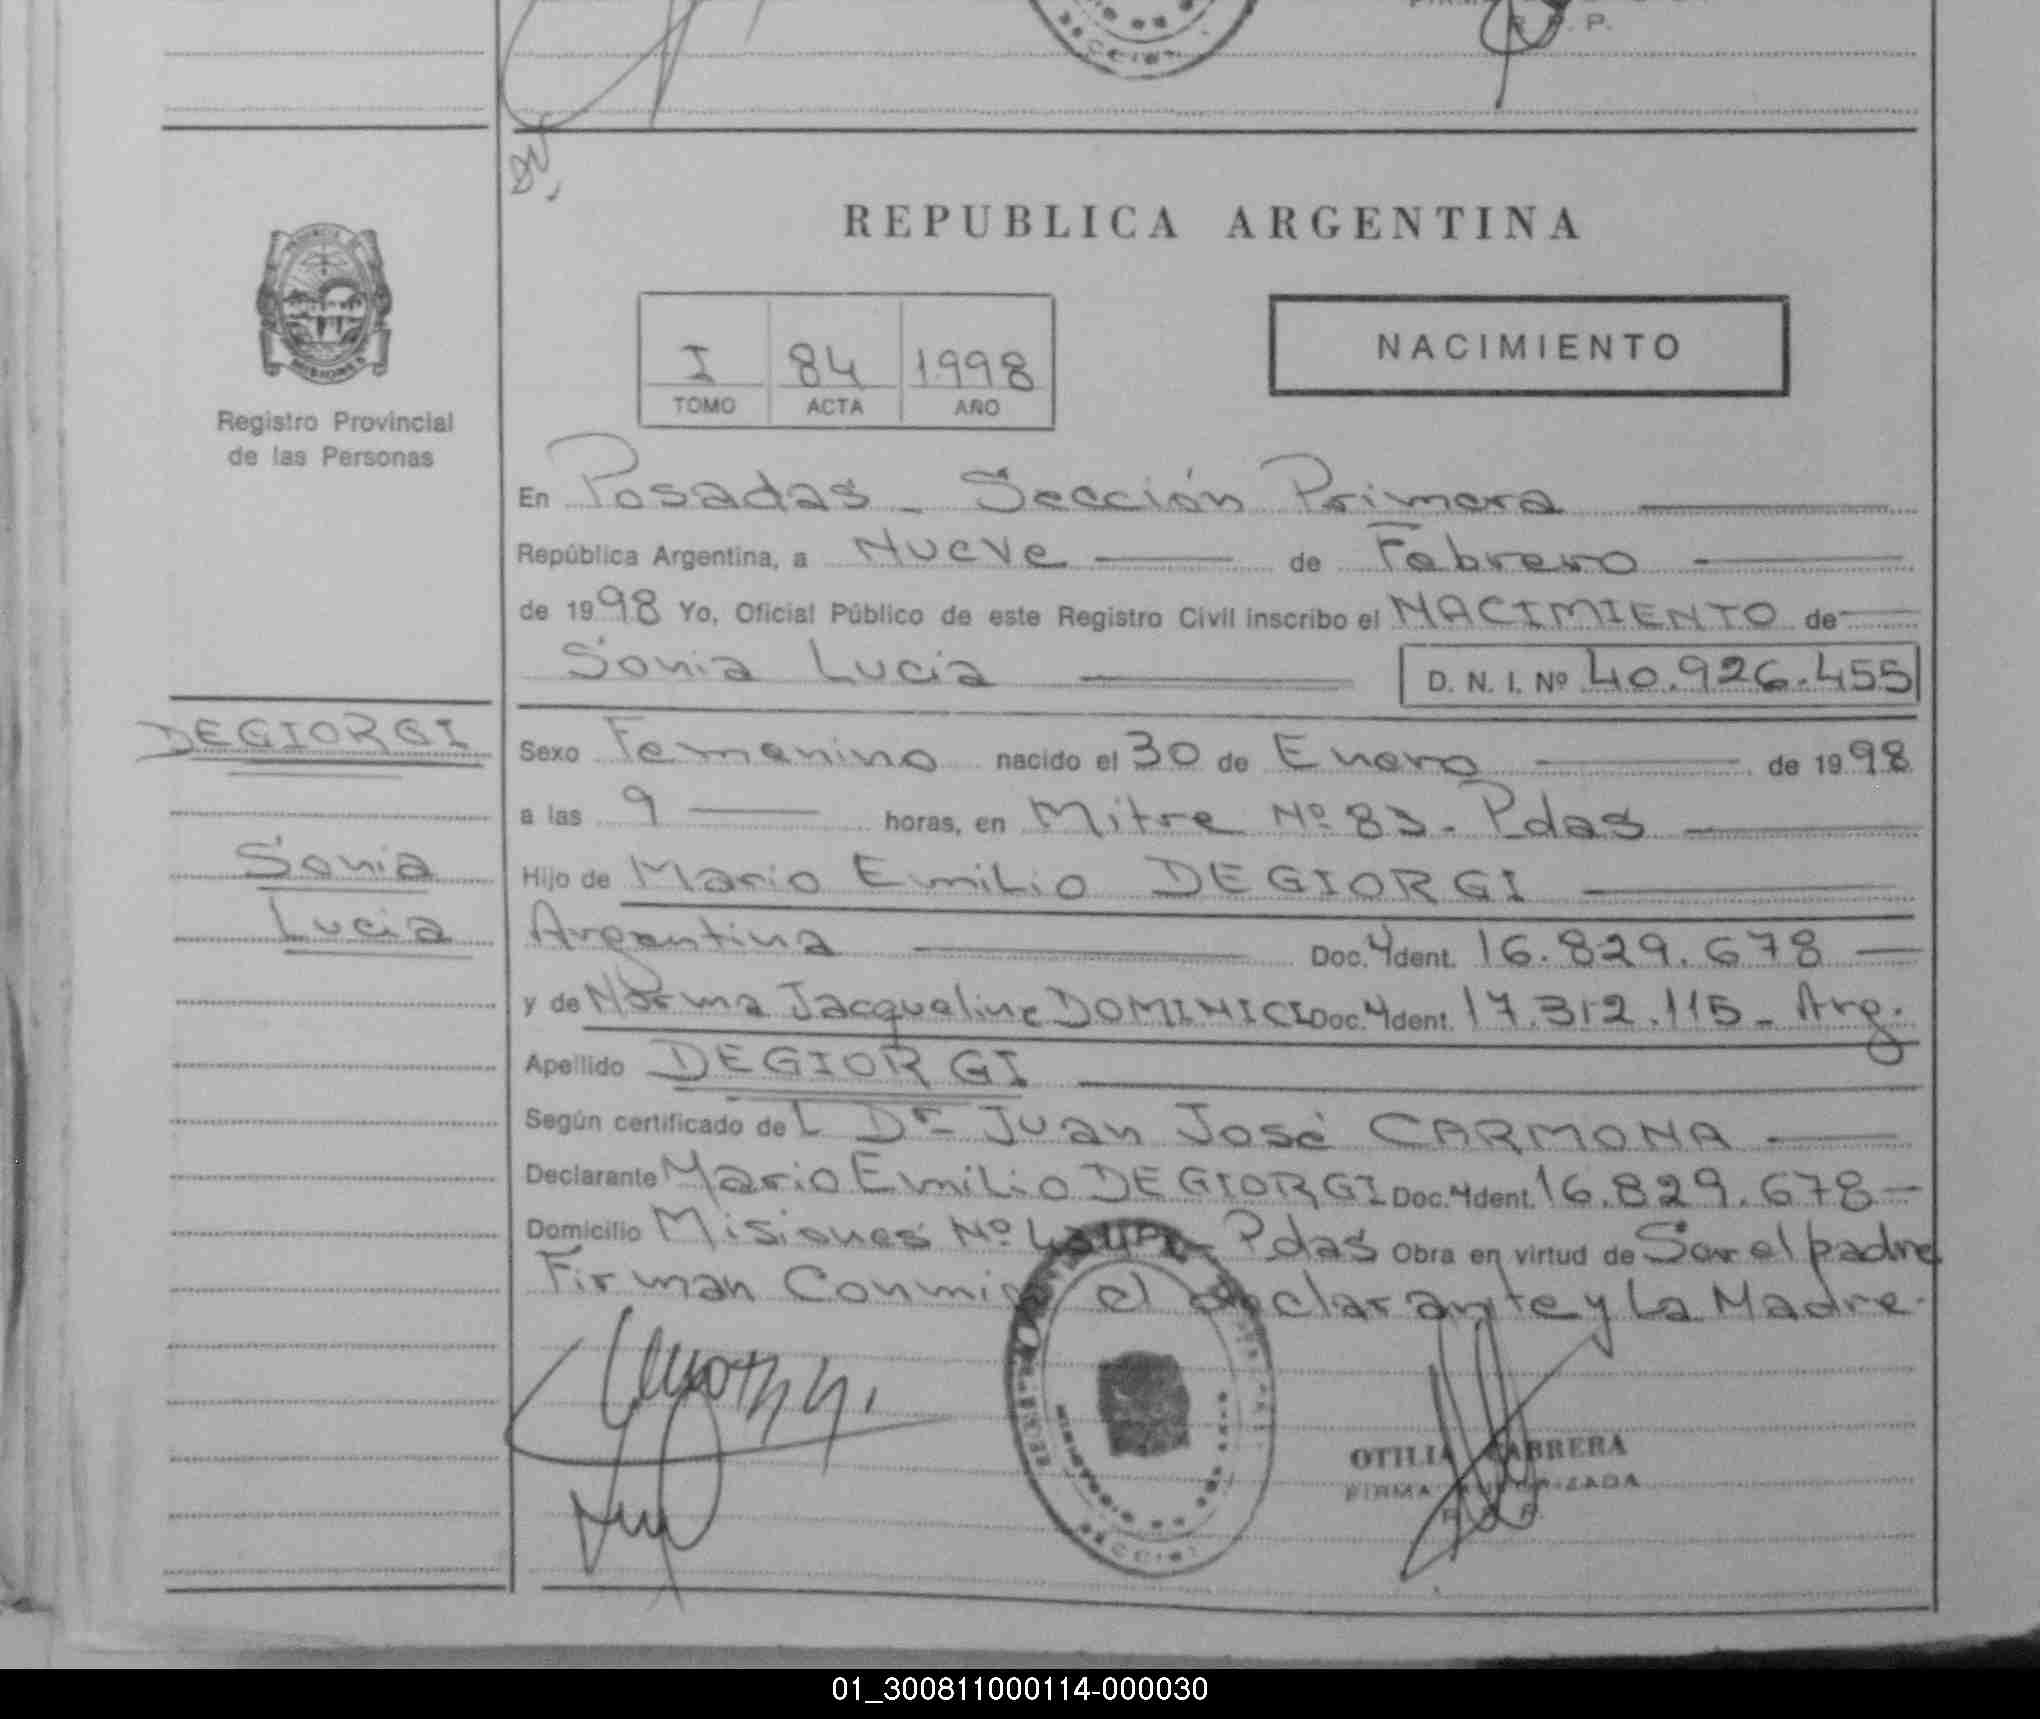 R. P. P.
SECCION
REPUBLICA ARGENTINA
PROVINCIA DE
MISIONES
Registro Provincial
de las Personas
I 84 1998
TOMO ACTA AÑO
NACIMIENTO
En Posadas - Sección Primera
República Argentina, a Nueve de Febrero
de 1998 Yo, Oficial Público de este Registro Civil inscribo el NACIMIENTO de
Sonia Lucia D. N. I. Nº 40.926.455
DEGIORGI
Sonia
Lucia
Sexo Femenino nacido el 30 de Enero de 1998
a las 9 horas, en Mitre Nº 83. Pdas
Hijo de Mario Emilio DEGIORGI
Argentina Doc. Ident. 16.829.678
y de Norma Jacqueline DOMINICI Doc. Ident. 17.312.115 - Arg.
Apellido DEGIORGI
Según certificado del Dr Juan José CARMONA
Declarante Mario Emilio DEGIORGI Doc. Ident. 16.829.678
Domicilio Misiones Nº Pdas Obra en virtud de Ser el padre
Firman Conmigo el declarante y La Madre.
OTILIA CABRERA
FIRMA AUTORIZADA
R. P. P.
SECCION
01_300811000114-000030